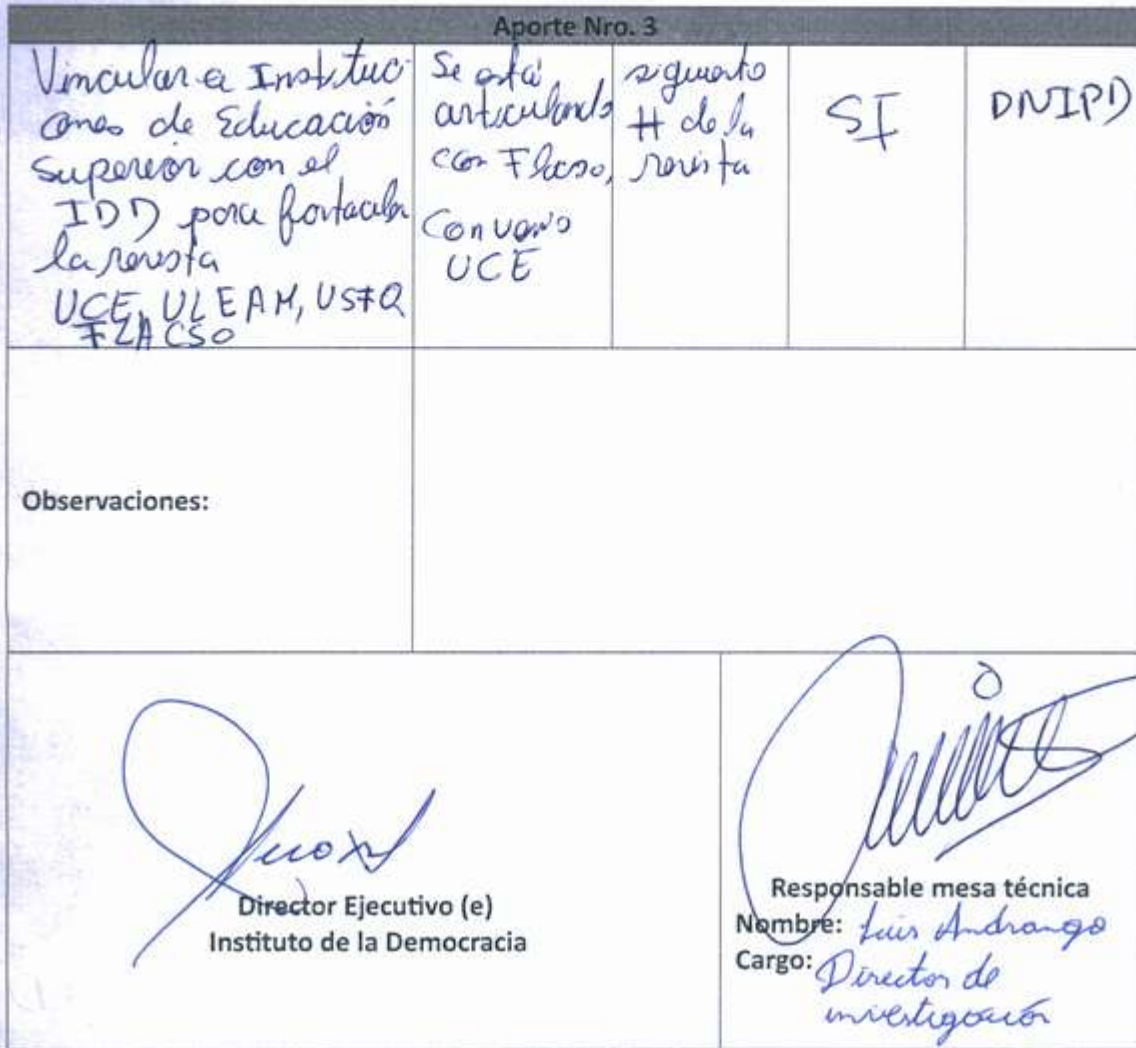 Aporte Nro. 3
Vincular a Instituci
ones de Educación
Superior con el
IDD para fortaceler
la revista
UCE, ULEAM, USFQ
FLACSO
Se está
articulando
con Flacso,
Convenio
UCE
siguiente
# de la
revista
SI
DNIPD
Observaciones:
Director Ejecutivo (e)
Instituto de la Democracia
Responsable mesa técnica
Nombre: Luis Andrango
Cargo: Director de
investigación